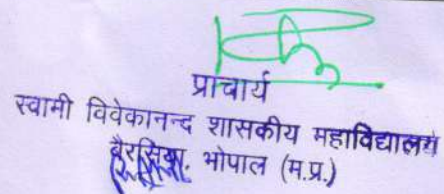 प्राचार्य
स्वामी विवेकानन्द शासकीय महाविद्यालय
बैरसिया, भोपाल (म.प्र.)